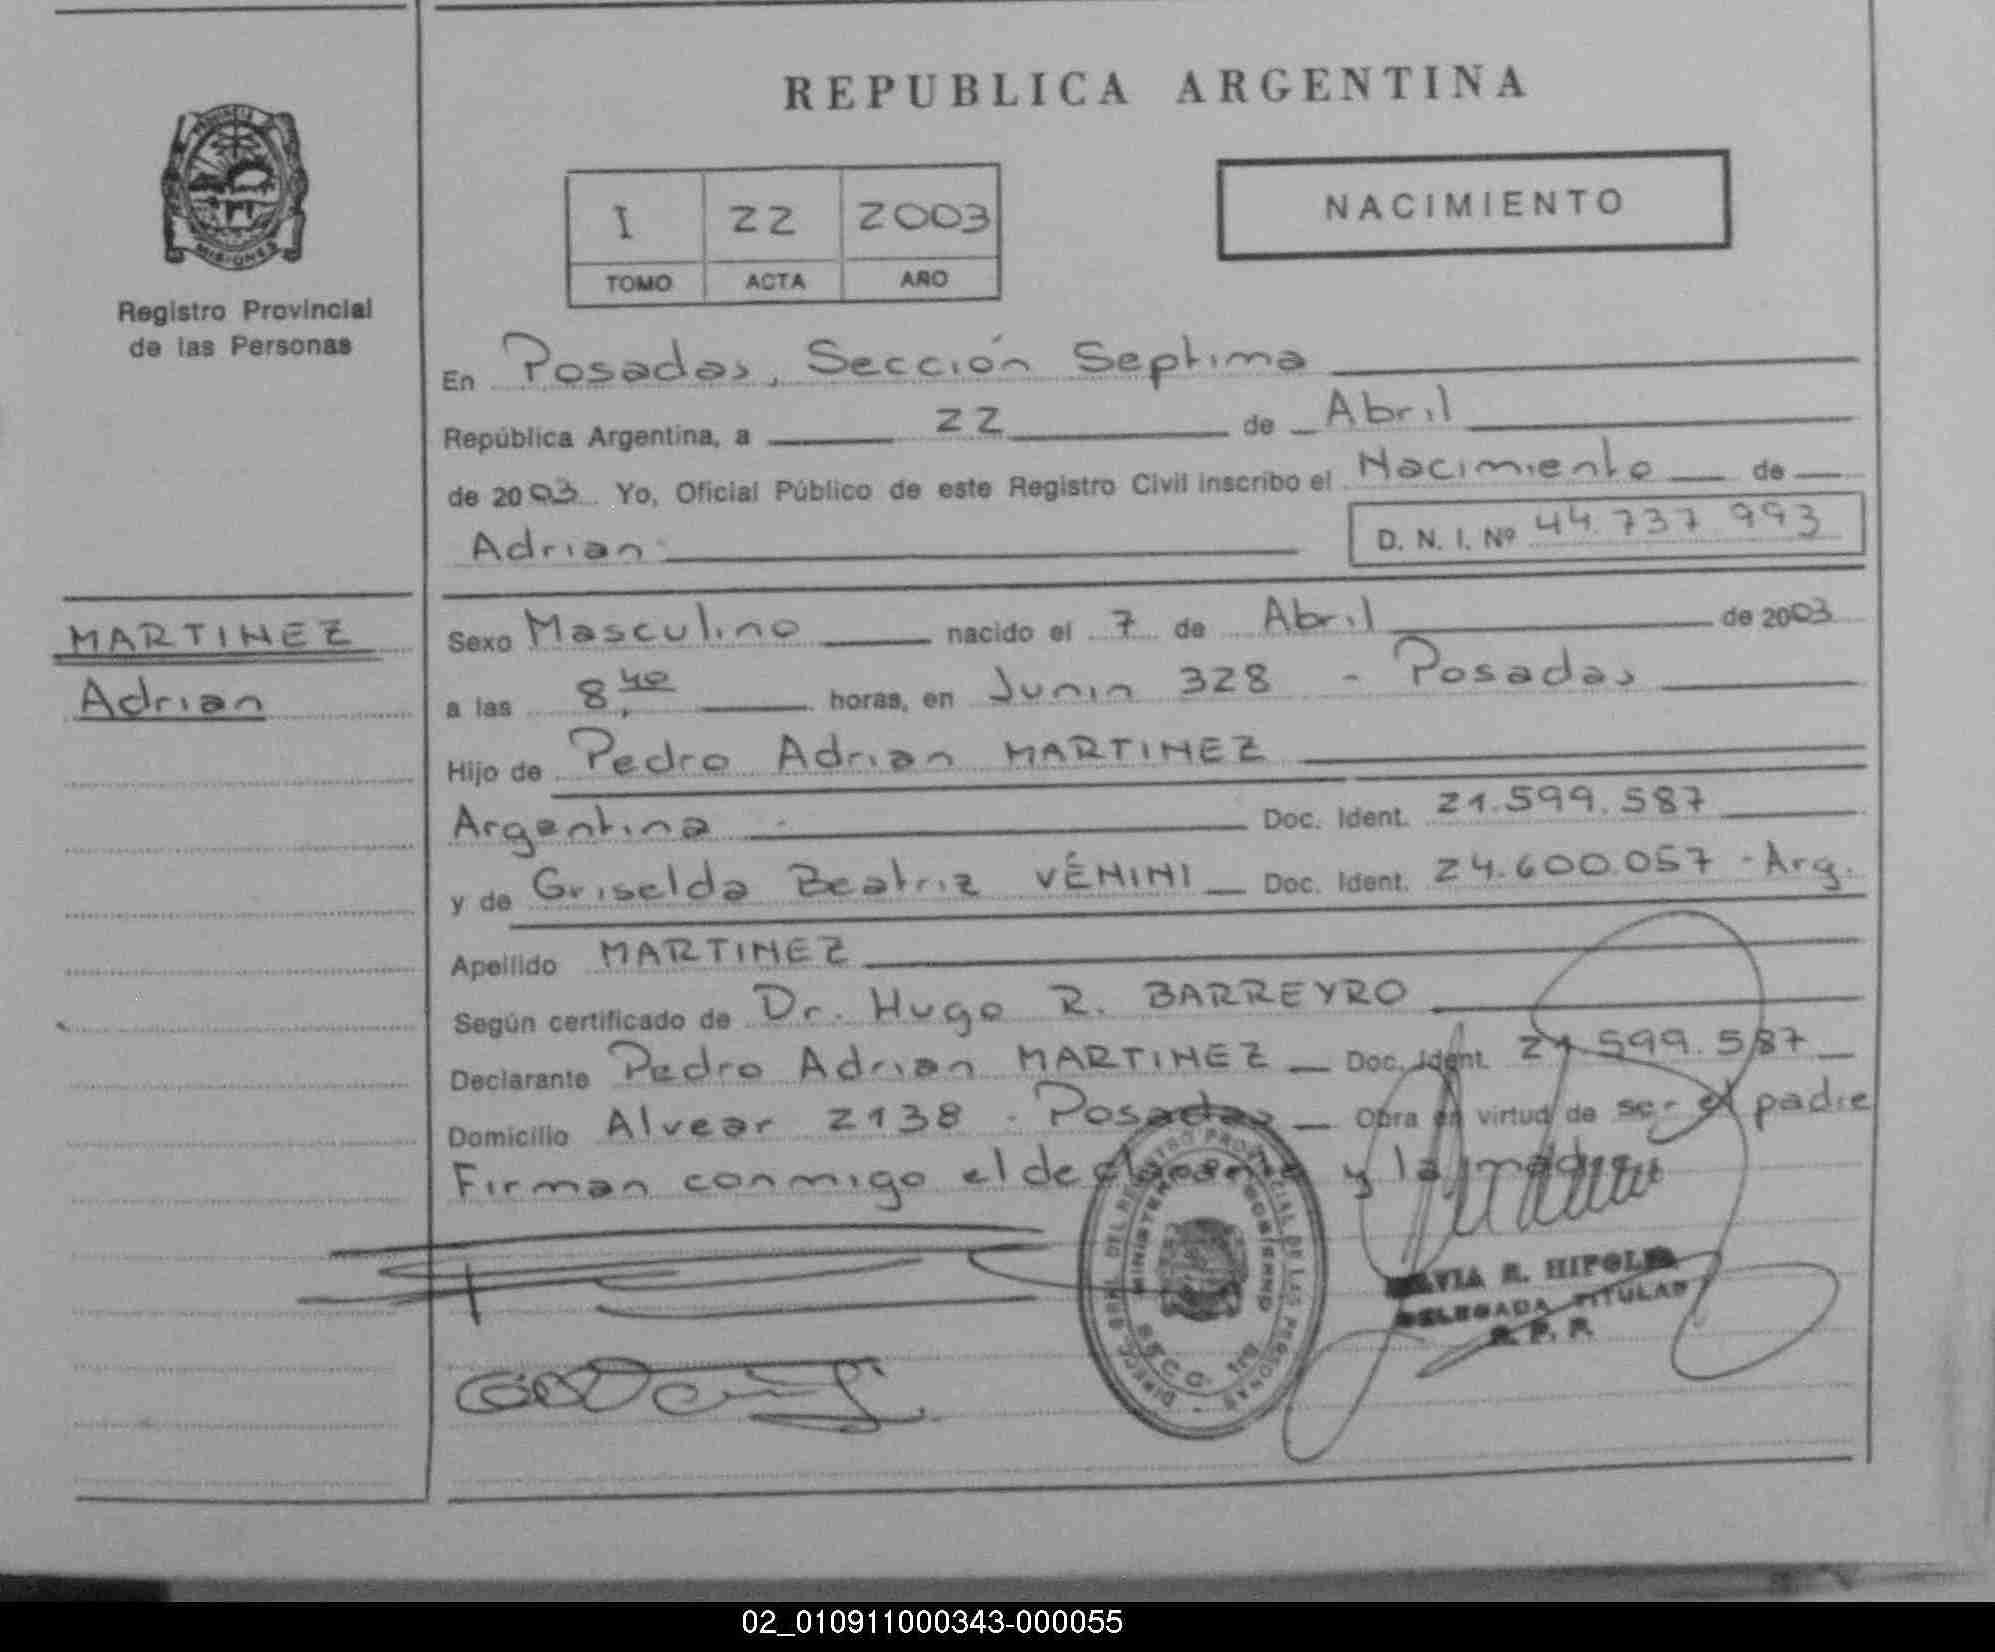 REPUBLICA ARGENTINA
PROVINCIA DE
MISIONES
Registro Provincial
de las Personas
I 22 2003
TOMO ACTA AÑO
NACIMIENTO
En Posadas, Sección Septima
República Argentina, a 22 de Abril
de 2003 Yo, Oficial Público de este Registro Civil inscribo el Nacimiento de
Adrian D. N. I. Nº 44.737.993
MARTINEZ
Adrian
Sexo Masculino nacido el 7 de Abril de 2003
a las 8,40 horas, en Junin 328 - Posadas
Hijo de Pedro Adrian MARTINEZ
Argentina Doc. Ident. 21.599.587
y de Griselda Beatriz VÉNINI Doc. Ident. 24.600.057 - Arg.
Apellido MARTINEZ
Según certificado de Dr. Hugo R. BARREYRO
Declarante Pedro Adrian MARTINEZ Doc. Ident. 21.599.587
Domicilio Alvear 2138 - Posadas Obra en virtud de ser el padre
Firman conmigo el declarante y la madre
DIRECC. GRAL. DEL REGISTRO PROVINCIAL DE LAS PERSONAS
MINISTERIO GOBIERNO
R. HIPOLITO
DELEGADA TITULAR
R. P. P.
02_010911000343-000055